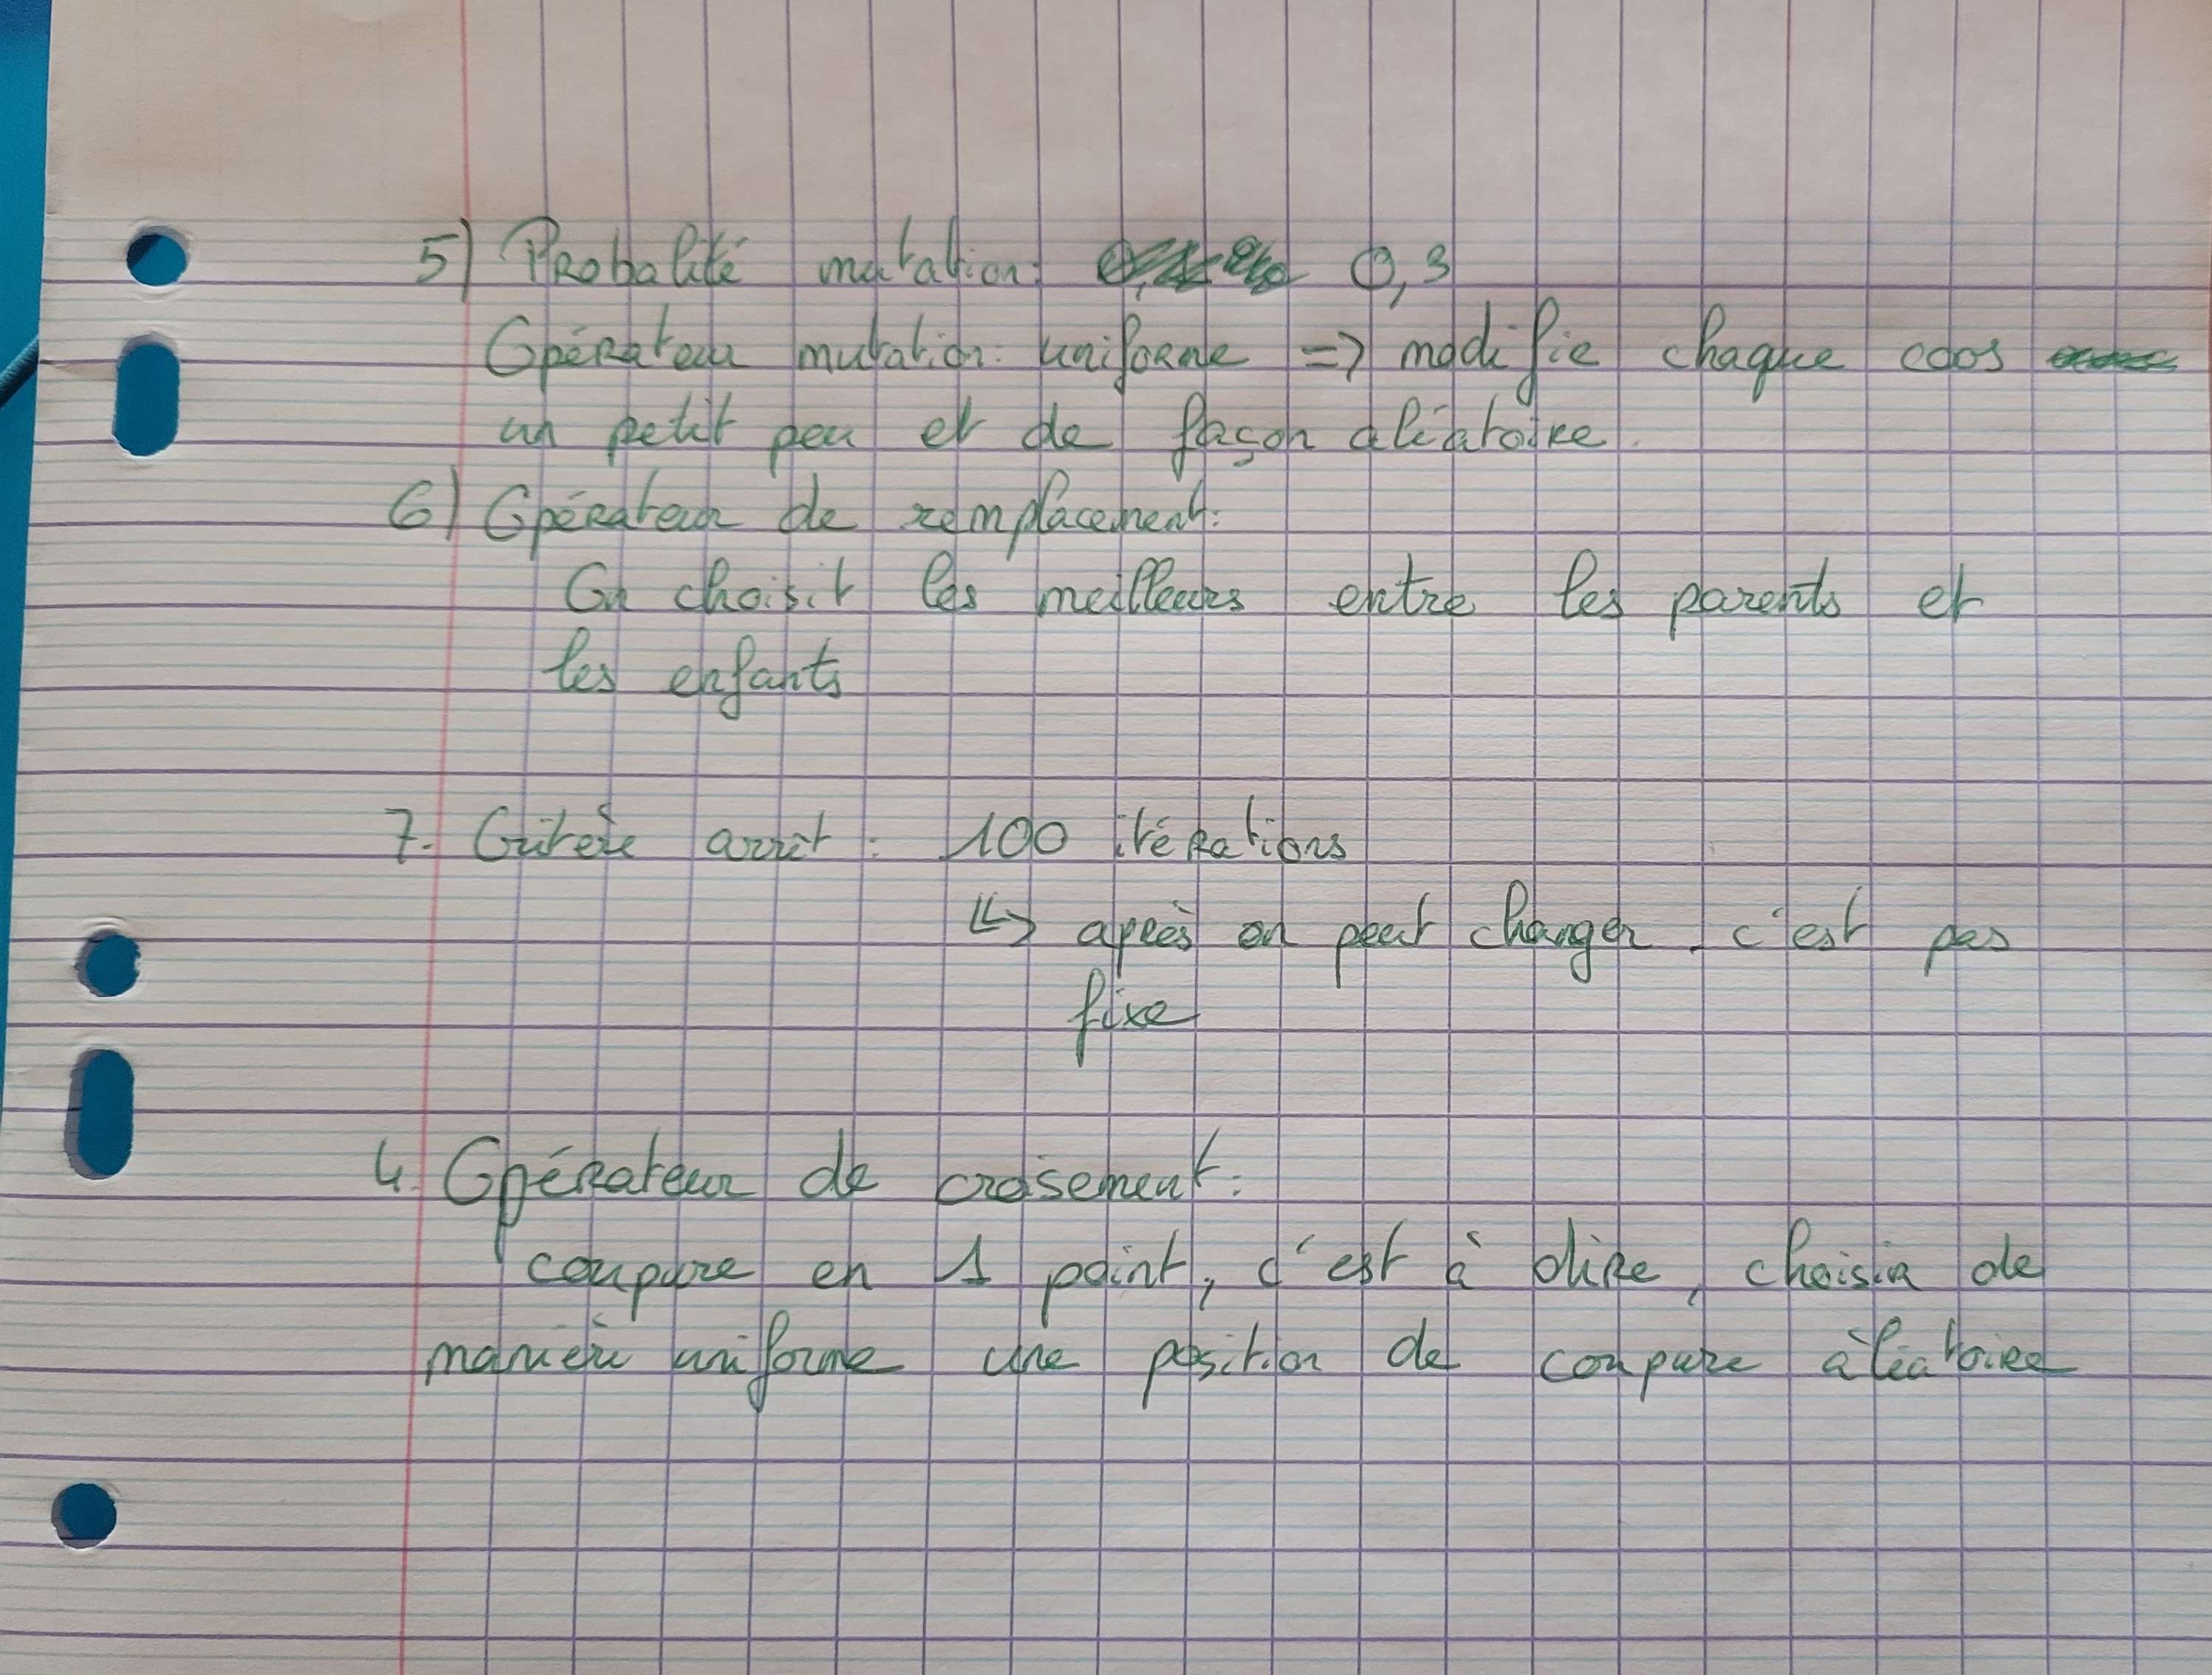 5) Probalité mutation: 0,3
Opérateur mutation: uniforme => modifie chaque coos
un petit peu et de façon aléatoire.
6) Opérateur de remplacement:
On choisit les meilleurs entre les parents et
les enfants
7. Critère arrêt : 100 itérations
↳ après on peut changer, c'est pas
fixe
4. Opérateur de croisement:
coupure en 1 point, c'est à dire, choisir de
manière uniforme une position de coupure àléatoire